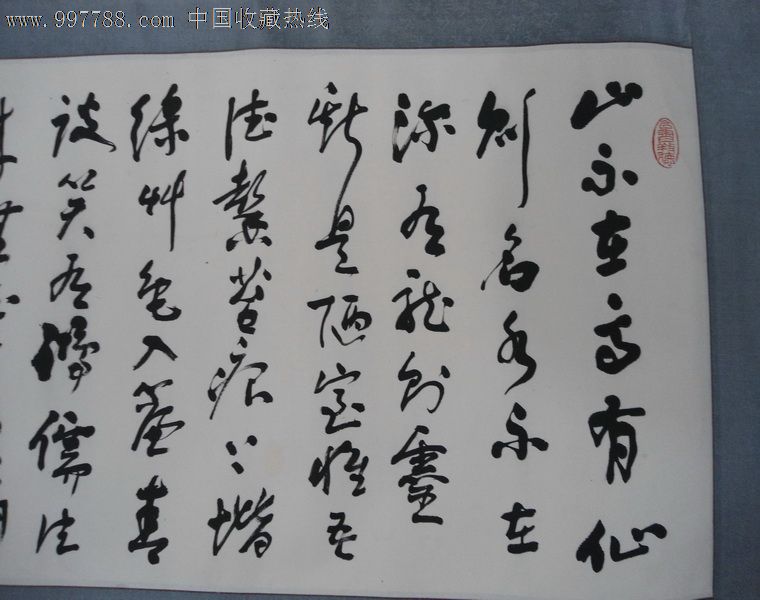 www.997788.com 中国收藏热线
山不在高有仙
則名水不在
深有龍則靈
斯是陋室惟吾
德馨苔痕上堦
綠艸色入簾青
談笑有鴻儒往